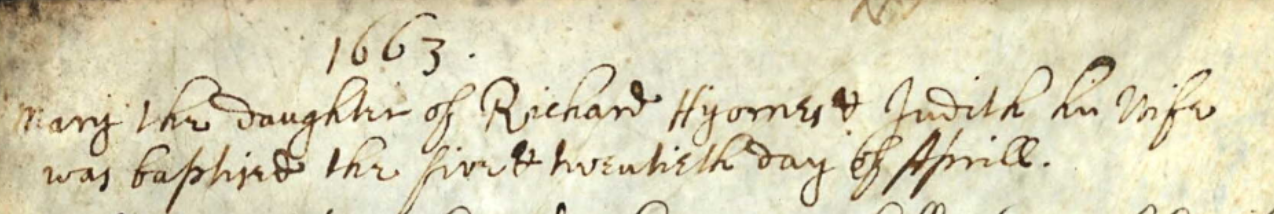 1663.
Mary the daughter of Richard Hyornes & Judith his Wife
was baptised the five & twentieth day of Aprill.